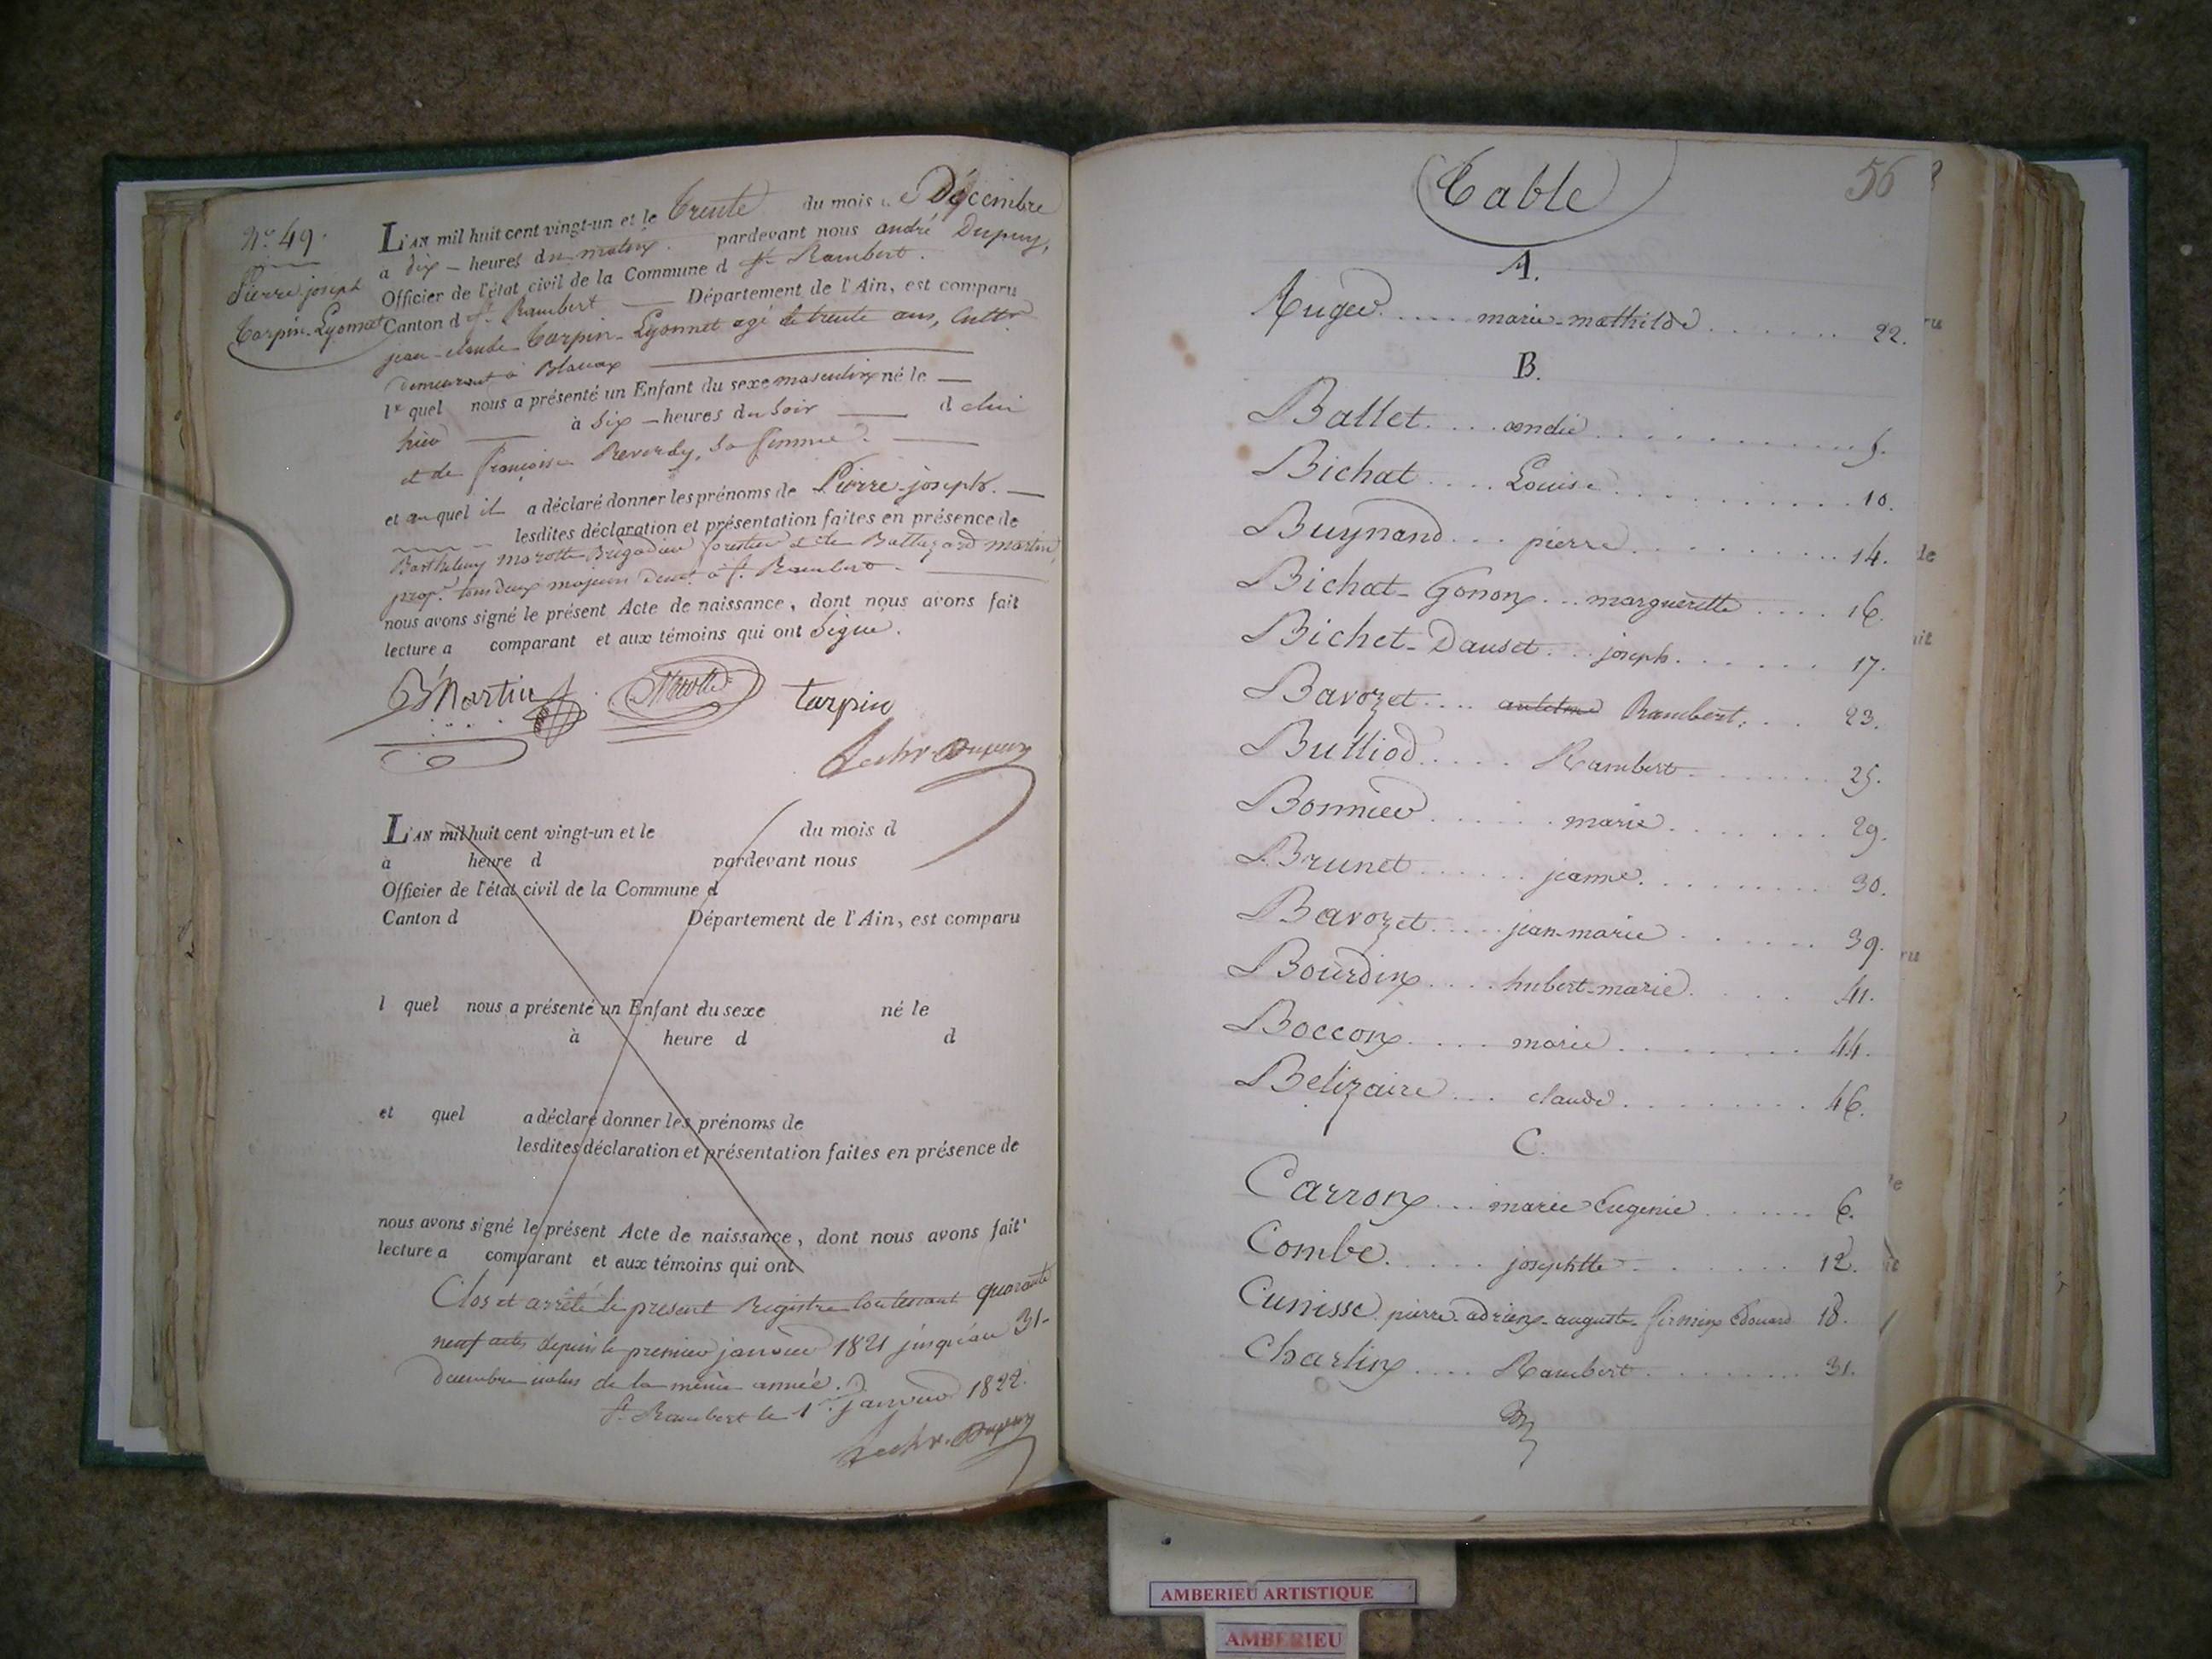 N.º 49.
Pierre joseph
Tarpin-Lyonnet
L'AN mil huit cent vingt-un et le trente du mois de Décembre
a dix - heures du matin. pardevant nous andré Dupuy,
Officier de l'état civil de la Commune d St. Rambert.
Canton d St. Rambert Département de l'Ain, est comparu
jean-claude Tarpin-Lyonnet agé de trente ans, Cultr
demeurant à Blanaz
lequel nous a présenté un Enfant du sexe masculin né le
hier à Six - heures du Soir d elui
et de françoise Reverdy, Sa femme.
et auquel il a déclaré donner les prénoms de Pierre-joseph.
lesdites déclaration et présentation faites en présence de
Barthelemy marotte Brigadier forestier et de Baltazard martin,
prop.re tous deux majeurs demt. à St. Rambert.
nous avons signé le présent Acte de naissance, dont nous avons fait
lecture a comparant et aux témoins qui ont Signé.
B Martin Marotte tarpin
Dupuy
L'AN mil huit cent vingt-un et le du mois d
a heure d pardevant nous
Officier de l'état civil de la Commune d
Canton d Département de l'Ain, est comparu
l quel nous a présenté un Enfant du sexe né le
à heure d d
et quel a déclaré donner les prénoms de
lesdites déclaration et présentation faites en présence de
nous avons signé le présent Acte de naissance, dont nous avons fait
lecture a comparant et aux témoins qui ont
Clos et arrêté le present Registre Contenant quarante
neuf actes depuis le premier janvier 1821 jusqu'au 31-
decembre inclus de la même année.
St. Rambert le 1er janvier 1822.
Dupuy
Table
56
A.
Auger..... marie-mathilde....... 22.
B.
Ballet.... andré............ 5.
Bichat.... Louise.......... 10.
Buynand... pierre.......... 14.
Bichat-Gonon... marguerette.... 16.
Bichet-Dauset... joseph....... 17.
Bavozet.... antelme Rambert... 23.
Bulliod..... Rambert....... 25.
Bonnier...... marie....... 29.
Brunet...... jeanne........ 30.
Bavozet.... jean-marie...... 39.
Bourdin.... hubert-marie.... 41.
Boccon.... marie........ 44.
Belizaire... claude........ 46.
C.
Carron... marie Eugenie...... 6.
Combe..... josephtte....... 12.
Cunisse pierre-adrien-auguste-firmin Edouard 18.
Charlin.... Rambert....... 31.
AMBERIEU ARTISTIQUE
AMBERIEU